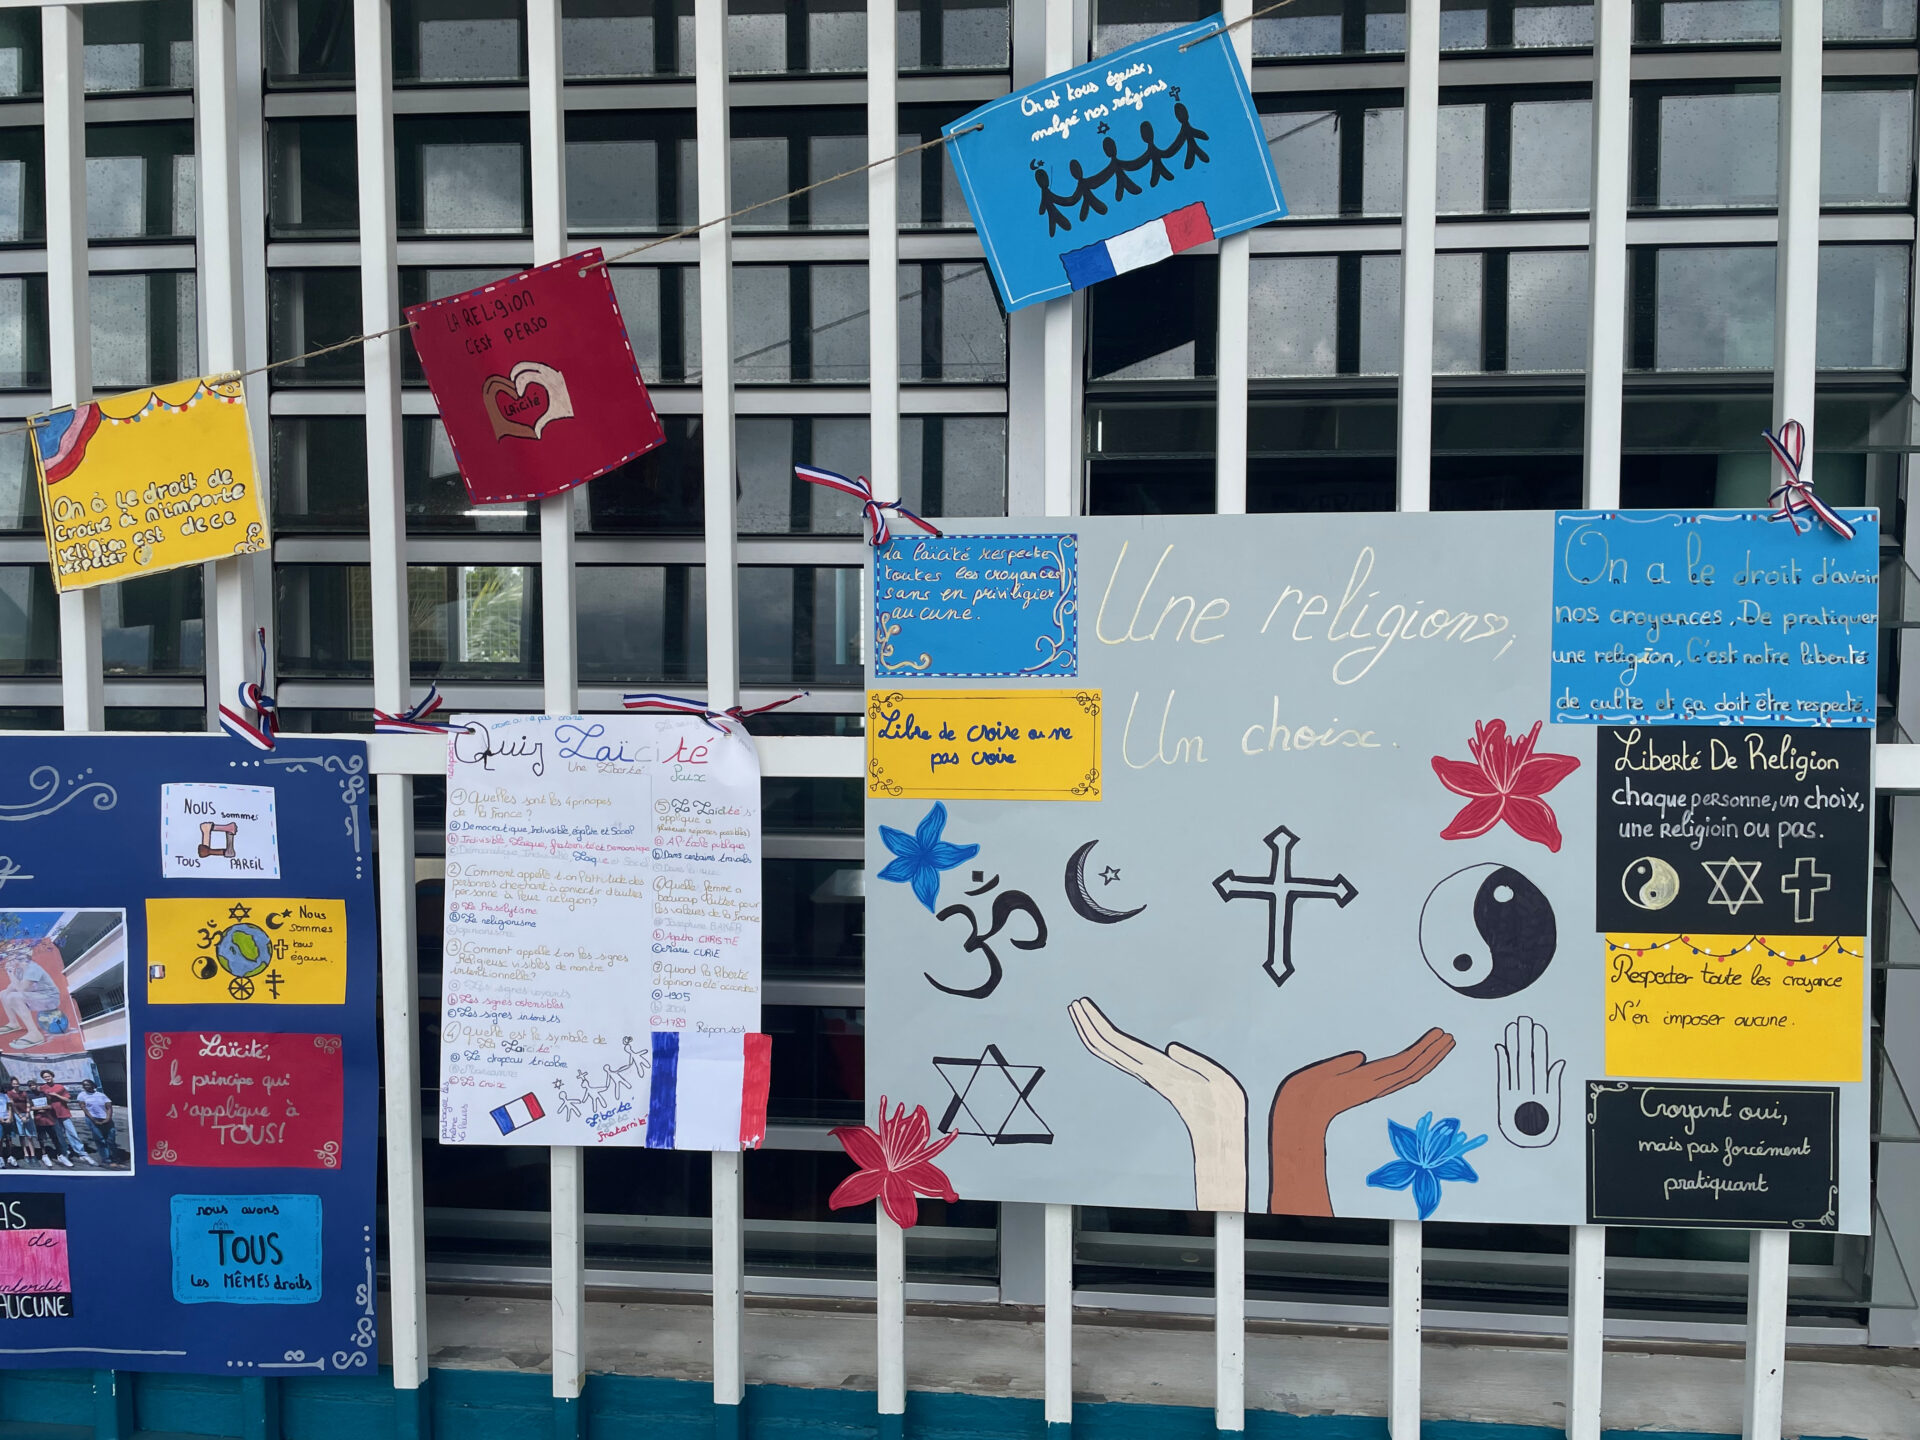 On est tous égaux,
malgré nos religions
LA RELigiON
C'EST PERSO
Laïcité
On à le droit de
Croire à n'importe
religion est de ce
respéter
La laïcité respecte
toutes les croyances
sans en priviligier
aucune.
Une religions,
Un choix.
On a le droit d'avoir
nos croyances, De pratiquer
une religion, C'est notre liberté
de culte et ça doit être respecté.
Libre de croire ou ne
pas croire
Liberté De Religion
chaque personne, un choix,
une Religioin ou pas.
Respecter toute les croyance
N'en imposer aucune.
Croyant oui,
mais pas forcément
pratiquant
croire ou ne pas croire
respect
Quiz Laïcité
Une Liberté
Paix
① Quelles sont les 4 principes
de la France ?
ⓐ Démocratique, Indivisible, égalite et Social
ⓑ Indivisible, Laïque, fraternité et Démocratique
ⓒ Démocratique, Indivisible, Laïque et Social
② Comment appelle t-on l'attitude des
personnes cherchant à convertir d'autres
personne à leur religion?
ⓐ Le Prosélytisme
ⓑ Le religionisme
③ Comment appelle t'on les signes
Religieux visibles de manière
intentionnelle?
ⓐ Les signes voyants
ⓑ Les signes ostensibles
ⓒ Les signes interdits
④ quelle est le symbole de
la Laïcité
ⓐ Le drapeau tricolore
ⓑ Marianne
ⓒ La croix
⑤ La Laïcité s'
applique à
plusieurs réponses possibles)
ⓐ AP école publique
ⓑ Dans certains travails
ⓒ Dans la rue
⑥ Quelle femme a
beaucoup lutter pour
les valeurs de la France
ⓐ Joséphine BAKER
ⓑ Agatha CHRISTIE
ⓒ Marie CURIE
⑦ Quand la liberté
d'opinion a été accordée?
ⓐ 1905
ⓑ 2004
ⓒ 1789
Réponses
partager les
même
valeurs
Liberté
égalité
fraternité
NOUS sommes
TOUS PAREIL
Nous
sommes
tous
égaux.
Laïcité,
le principe qui
s'applique à
TOUS!
nous avons
TOUS
les MÊMES droits
AS
de
interdit
AUCUNE